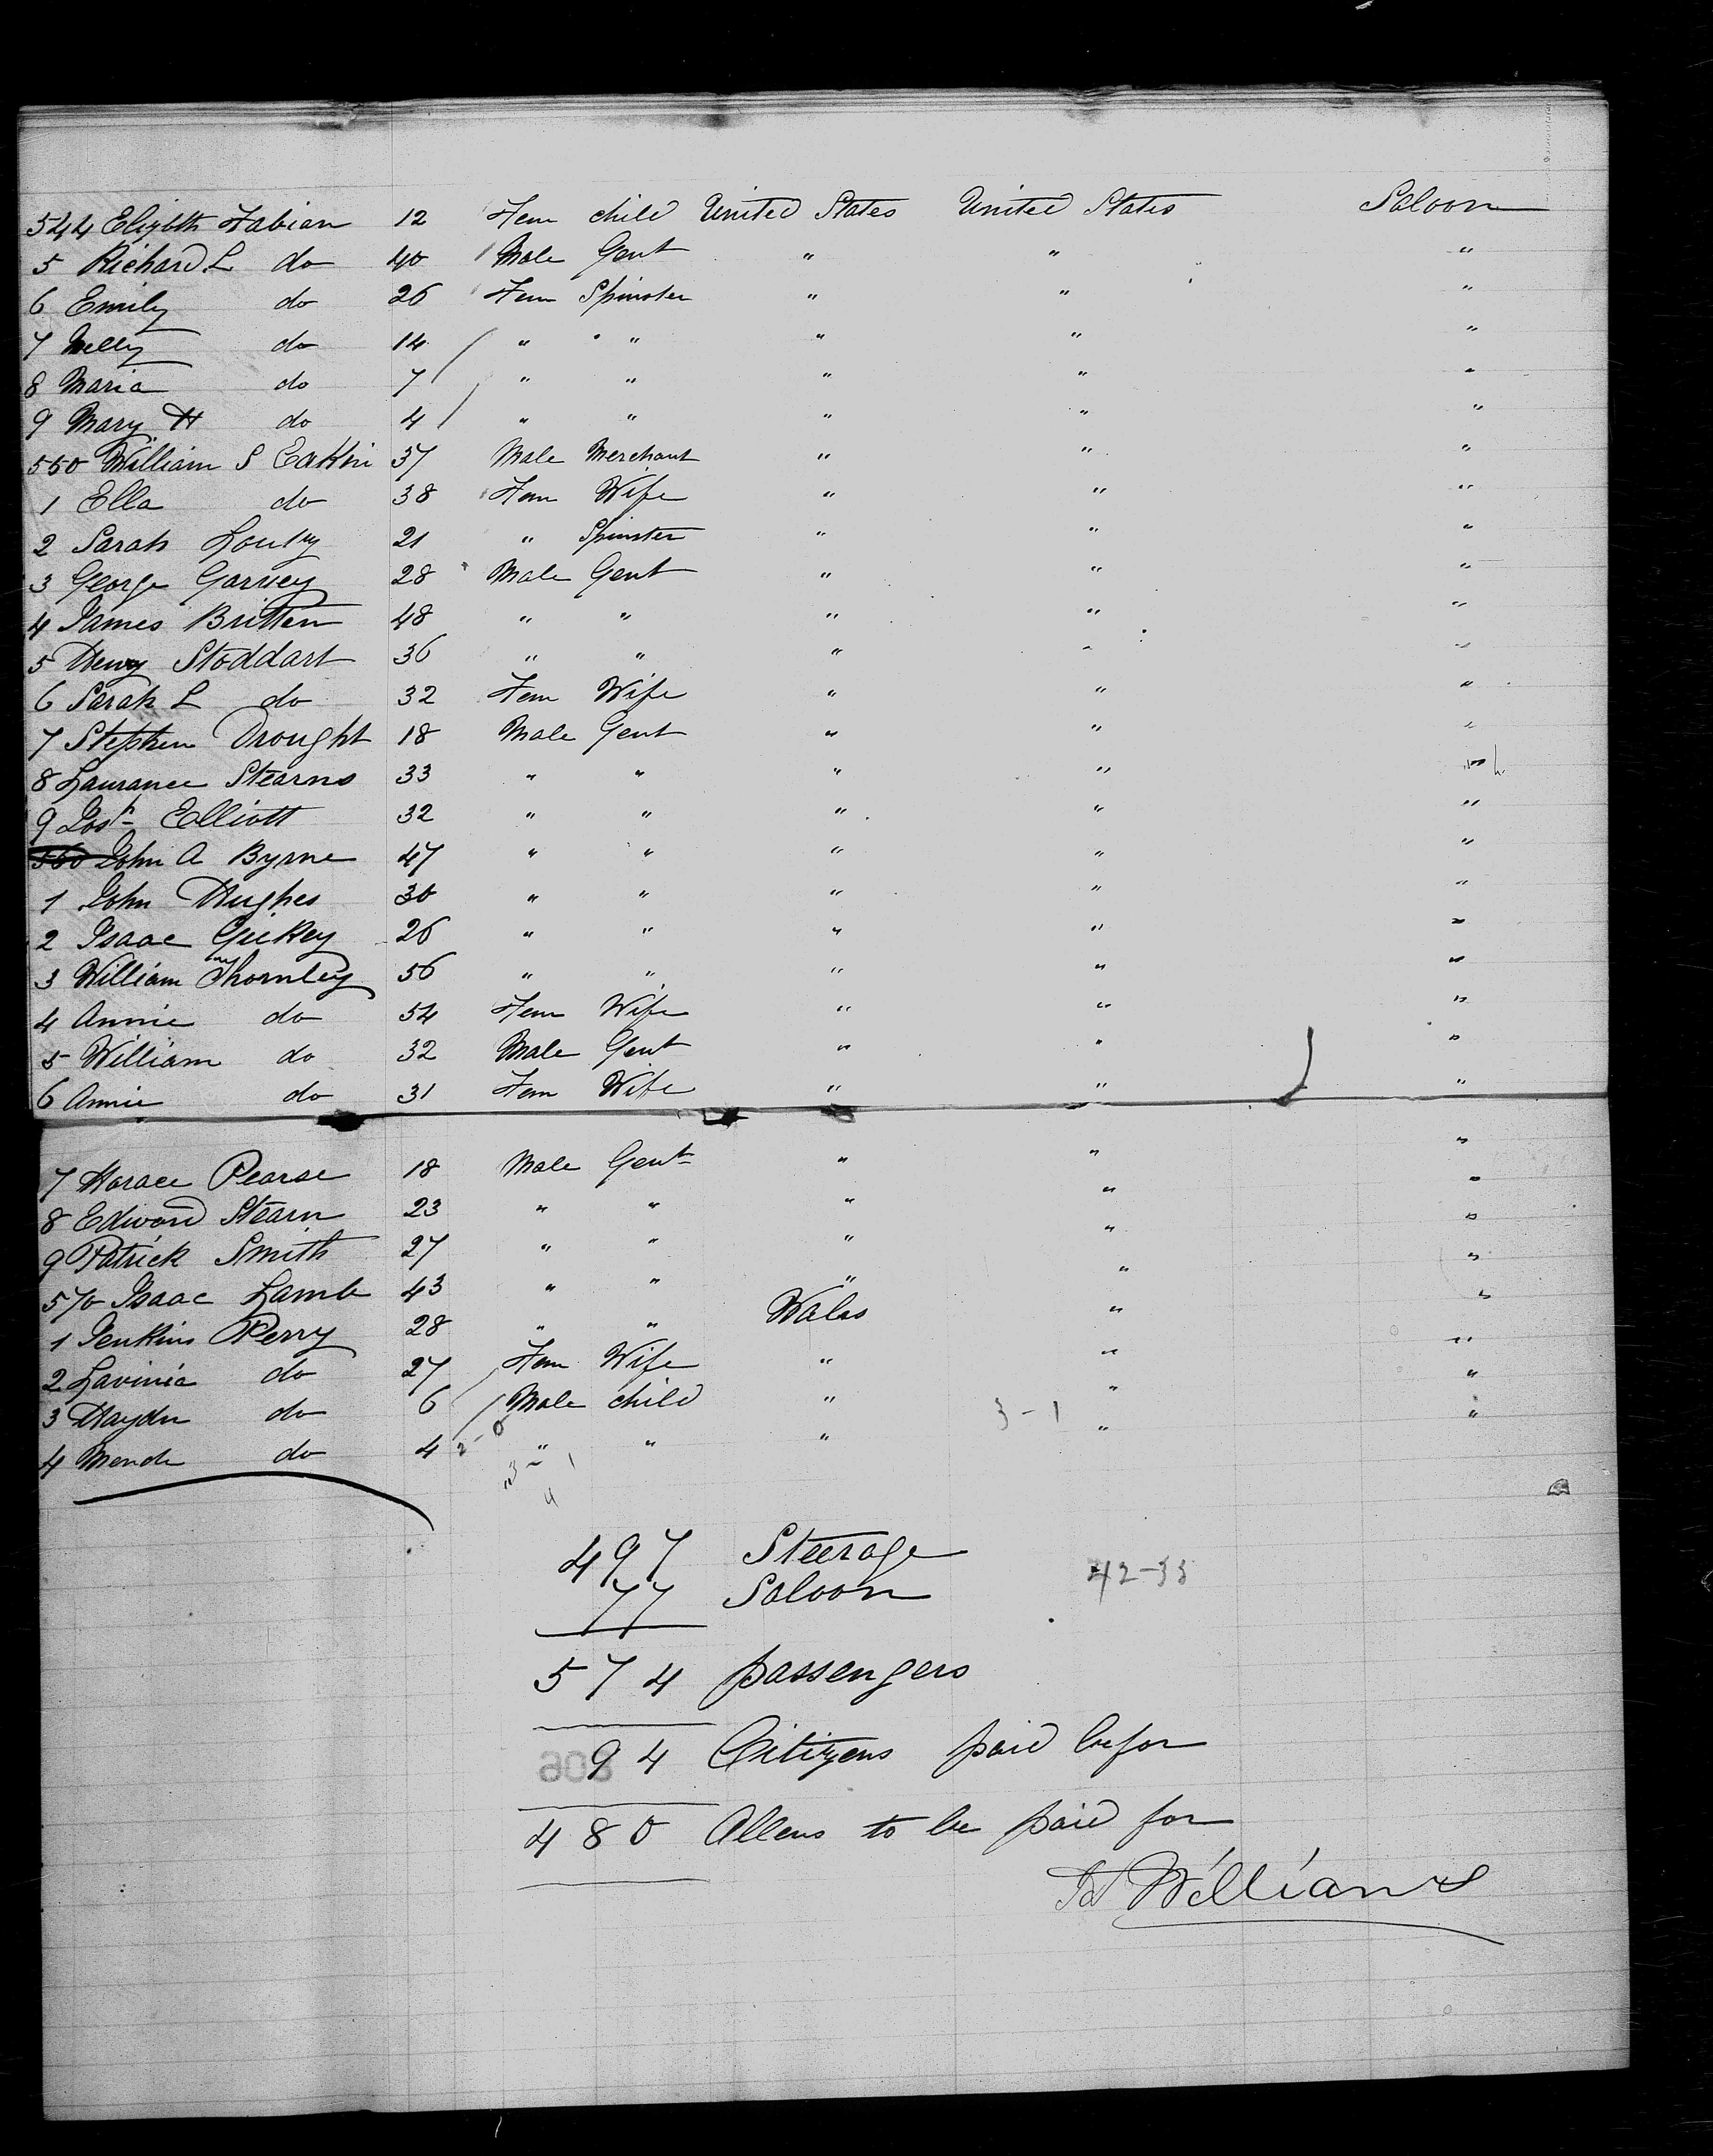 544 Elizbth Fabian 12 Fem child United States United States Saloon
5 Richard L do 40 Male Gent " " "
6 Emily do 26 Fem Spinster " " "
7 Nelly do 14 " " " " "
8 Maria do 7 " " " " "
9 Mary H do 4 " " " " "
550 William S Eakin 37 Male Merchant " " "
1 Ella do 38 Fem Wife " " "
2 Sarah 21 " Spinster " " "
3 George Garvey 28 Male Gent " " "
4 James Britten 48 " " " " "
5 Henry Stoddart 36 " " " " "
6 Sarah L do 32 Fem Wife " " "
7 Stephen Drought 18 Male Gent " " "
8 Laurance Stearns 33 " " " " "
9 Josh Elliott 32 " " " " "
560 John A Byrne 47 " " " " "
1 John Hughes 30 " " " " "
2 Isaac 26 " " " " "
3 William Thornley 56 " " " " "
4 Annie do 54 Fem Wife " " "
5 William do 32 Male Gent " " "
6 Annie do 31 Fem Wife " " "
7 Horace Pearse 18 Male Gent " " "
8 Edward Stearn 23 " " " " "
9 Patrick Smith 27 " " " " "
570 Isaac Lamb 43 " " " " "
1 Jenkins Perry 28 " " Wales " "
2 Lavinia do 27 Fem Wife " " "
3 Haydn do 6 Male child " " "
4 do 4 " " " " "
3-1
497 Steerage
77 Saloon
574 passengers
94 Citizens paid befor
480 Aliens to be paid for
Williams